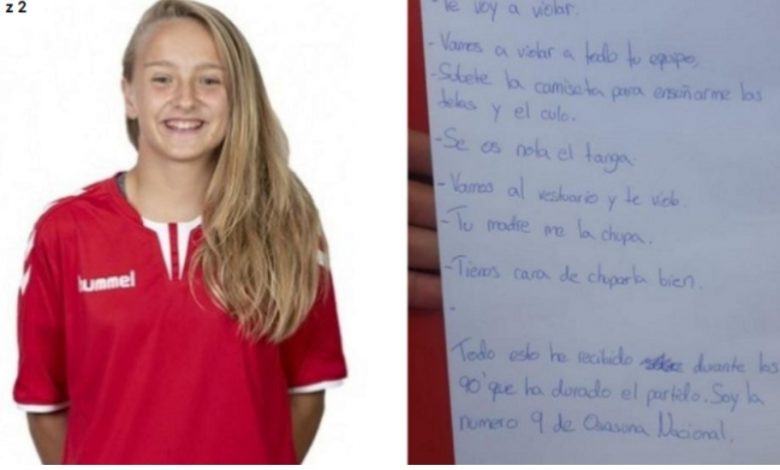 z 2
hummel
-Te voy a violar.
-Vamos a violar a todo tu equipo.
-Subete la camiseta para enseñarme las
tetas y el culo.
-Se os nota el tanga.
-Vamos al vestuario y te violo.
-Tu madre me la chupa.
-Tienes cara de chuparla bien.
-
Todo esto he recibido durante los
90' que ha durado el partido. Soy la
numero 9 de Osasuna Nacional.